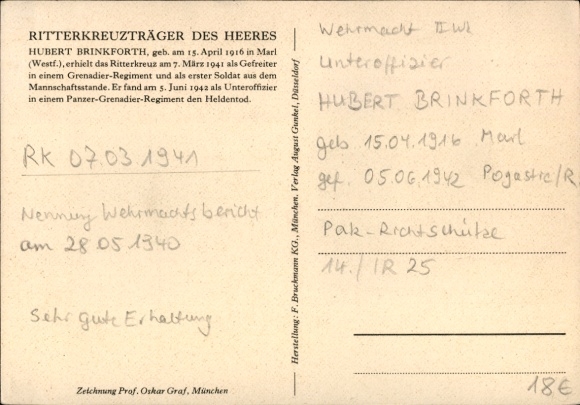 RITTERKREUZTRÄGER DES HEERES
HUBERT BRINKFORTH, geb. am 15. April 1916 in Marl
(Westf.), erhielt das Ritterkreuz am 7. März 1941 als Gefreiter
in einem Grenadier-Regiment und als erster Soldat aus dem
Mannschaftsstande. Er fand am 5. Juni 1942 als Unteroffizier
in einem Panzer-Grenadier-Regiment den Heldentod.
RK 07.03.1941
Nennung Wehrmachtsbericht
am 28 05 1940
Sehr gute Erhaltung
Zeichnung Prof. Oskar Graf, München
Herstellung: F. Bruckmann KG., München. Verlag August Gunkel, Düsseldorf
Wehrmacht II Wk
Unteroffizier
HUBERT BRINKFORTH
geb 15.04.1916 Marl
gef. 05.06.1942 Pogastie/R.
Pak-Richtschütze
14./IR 25
18€